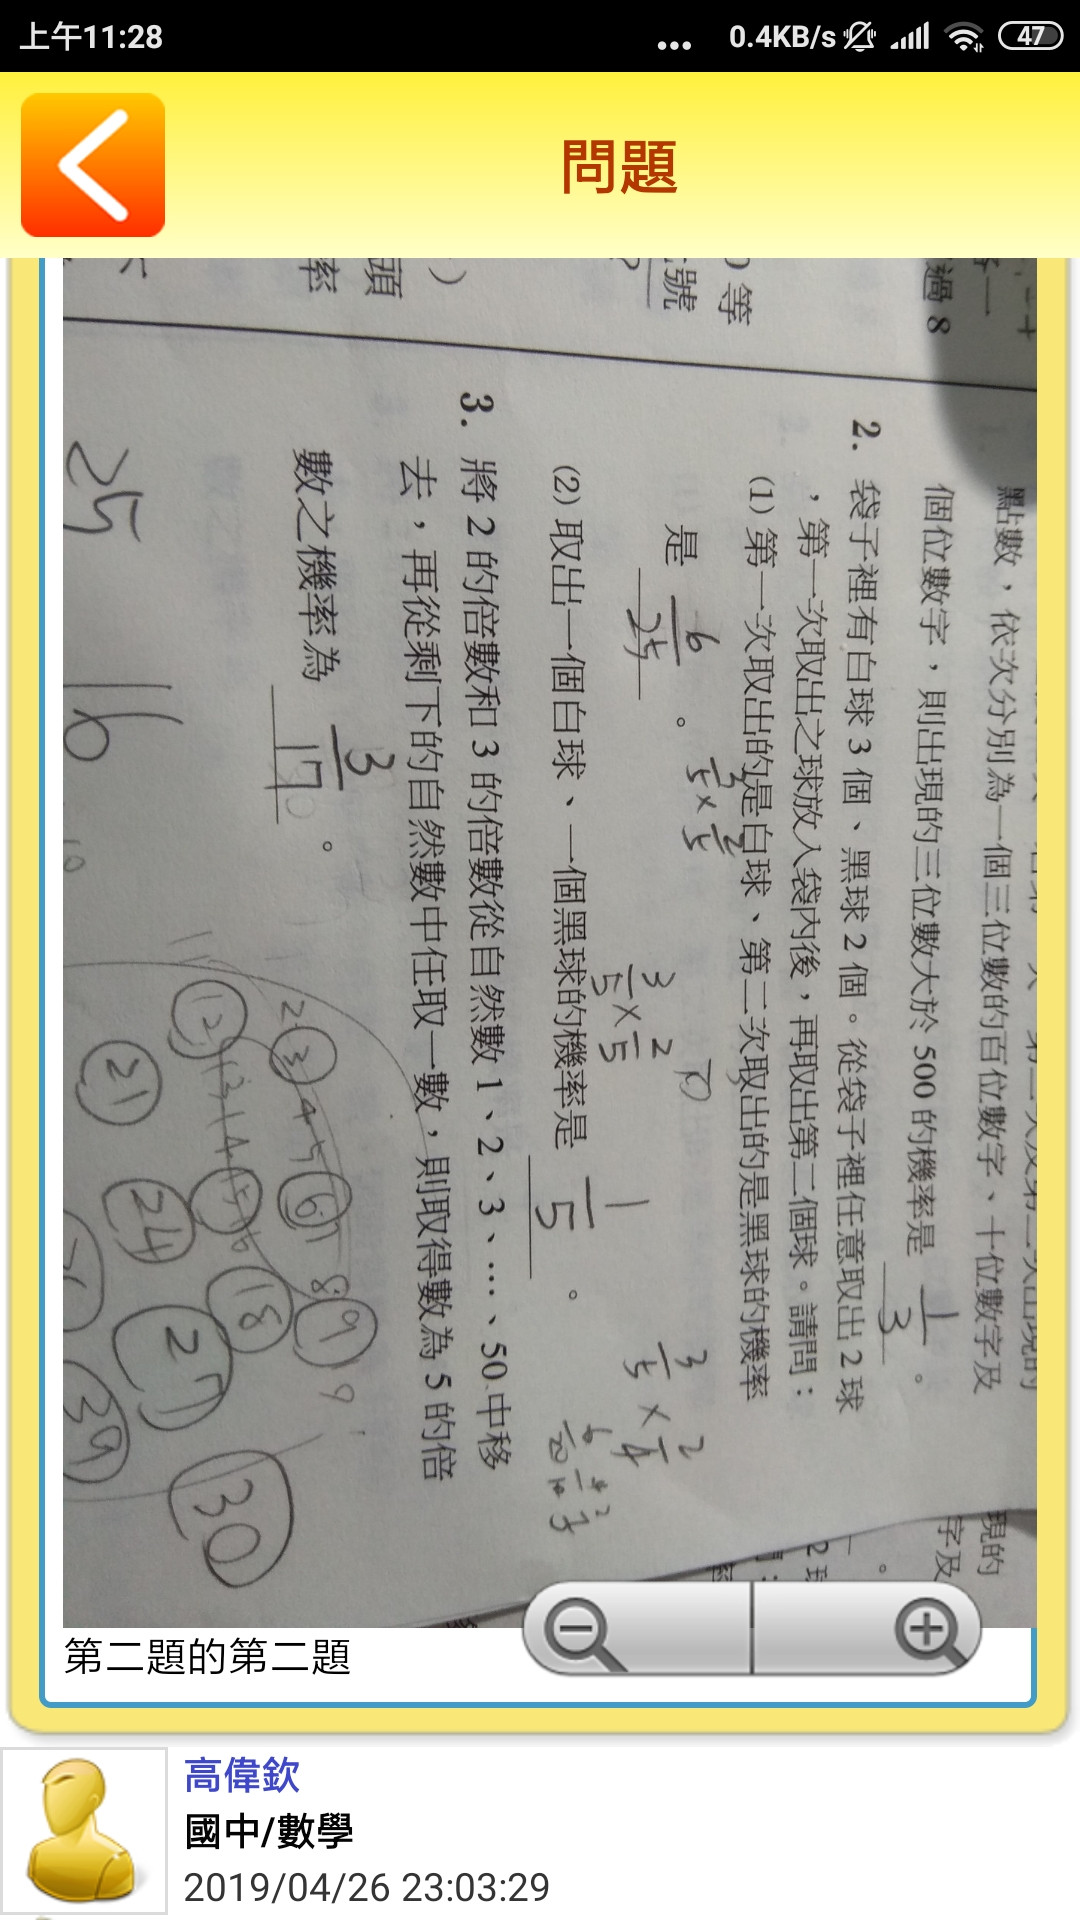 上午11:28
... 0.4KB/s 47
問題
過 8
等
號
頭
率
)
點數，依次分別為一個三位數的百位數字、十位數字及
個位數字，則出現的三位數大於 500 的機率是 1/3 。
2. 袋子裡有白球 3 個、黑球 2 個。從袋子裡任意取出 2 球
，第一次取出之球放入袋內後，再取出第二個球。請問：
(1) 第一次取出的是白球、第二次取出的是黑球的機率
是 6/25 。
3/5 × 2/5
(2) 取出一個白球、一個黑球的機率是 1/5 。
3/5 × 2/4
3. 將 2 的倍數和 3 的倍數從自然數 1、2、3、…、50 中移
去，再從剩下的自然數中任取一數，則取得數為 5 的倍
數之機率為 3/17 。
25
16
10
2 3 4 5 6 7 8 9
12 13 14 15 16 18
21 24 27 30
39
現的
字及
第二題的第二題
高偉欽
國中/數學
2019/04/26 23:03:29